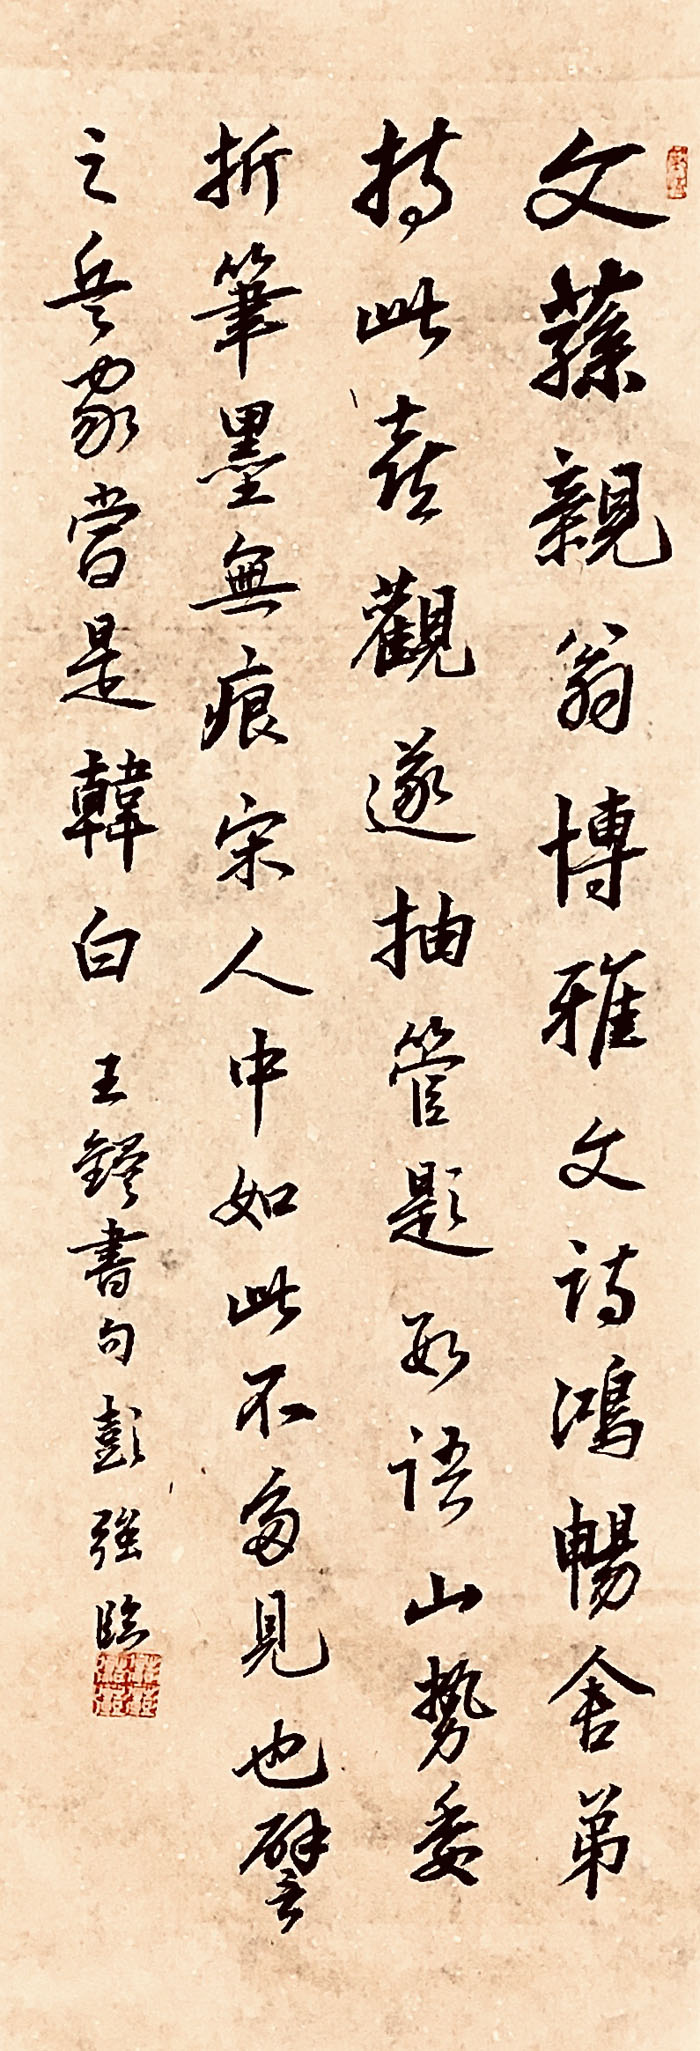 文蓀親翁博雅文詩鴻暢舍弟
持此卷觀遂抽管題數語山勢委
折筆墨無痕宋人中如此不多見也譬
之兵家當是韓白 王鐸書句 彭強臨